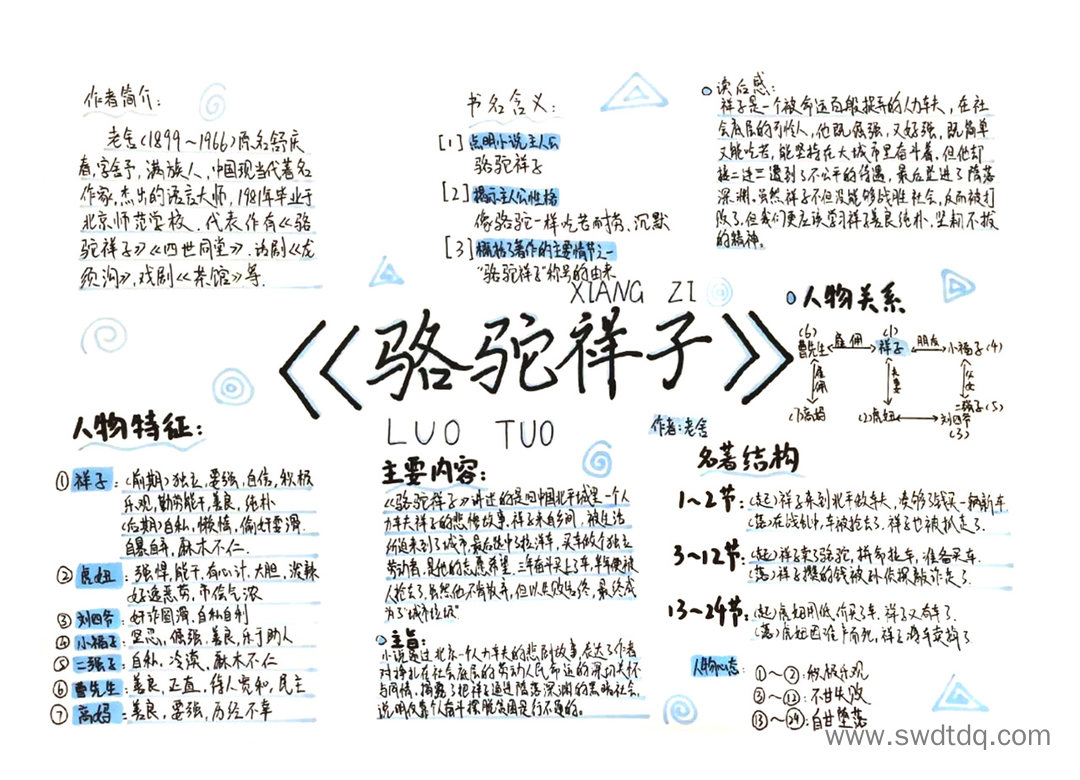 作者简介:
老舍(1899~1966)原名舒庆
春,字舍予,满族人,中国现当代著名
作家,杰出的语言大师,1981年毕业于
北京师范学校、代表作有《骆
驼祥子》《四世同堂》.话剧《龙
须沟》,戏剧《茶馆》等.
书名含义:
[1]点明小说主人公
骆驼祥子
[2]揭示主人公性格
像骆驼一样吃苦耐劳、沉默
[3]概括了著作的主要情节之一
"骆驼祥子"称号的由来
读后感:
祥子是一个被命运百般捉弄的人力车夫,在社
会底层的可怜人,他既倔强,又好强,既简单
又能吃苦,能坚持在大城市里奋斗着,但他却
接二连三遇到了不公平的待遇,最后坠进了堕落
深渊.虽然祥子不但没能够战胜社会,反而被打
败了,但我们更应该学习祥子善良纯朴,坚韧不拔
的精神。
XIANG ZI
《骆驼祥子》
LUO TUO
作者:老舍
人物关系
(6) (1)
曹先生 雇佣 祥子 朋友 小福子(4)
雇佣 夫妻 父女
(7)高妈 (2)虎妞 刘四爷 二强子(5)
(3)
人物特征:
①祥子:(前期)独立,要强,自信,积极
乐观,勤劳能干,善良,纯朴
(后期)自私,懒惰,偷奸耍滑.
自暴自弃,麻木不仁.
②虎妞:强悍,能干,有心计,大胆,泼辣
好逸恶劳,市侩气浓
③刘四爷:奸诈圆滑,自私自利
④小福子:坚忍,倔强,善良,乐于助人
⑤二强子:自私,冷漠,麻木不仁
⑥曹先生:善良,正直,待人宽和,民主
⑦高妈:善良,要强,历经不幸
主要内容:
《骆驼祥子》讲述的是旧中国北平城里一个人
力车夫祥子的悲惨故事.祥子来自乡间,被生活
所迫来到了城市,最后选中了拉洋车,买车做个独立
劳动者,是他的志愿希望.三年奋斗买上了车,半年便被
人抢去了,虽然他不断放弃,但以失败告终,最终成
为了"城市垃圾"
主旨:
小说通过北京一个人力车夫的悲剧故事,表达了作者
对挣扎在社会底层的劳动人民命运的深切关怀
与同情,揭露了把祥子逼进堕落深渊的黑暗社会,
说明仅靠个人奋斗摆脱贫困是行不通的.
名著结构
1~2节:(起)祥子来到北平放车夫,凑够了钱买一辆新车
(落)在战乱中,车被抢去了.祥子也被抓走了.
3~12节:(起)祥子卖了骆驼,拼命拉车,准备买车.
(落)祥子攒的钱被孙侦探敲诈走了.
13~24节:(起)虎妞用低价买了车.祥子又有车了.
(落)虎妞因难产而死,祥子将车卖掉了
人物心态: ①~②:积极乐观
③~⑫:不甘失败
⑬~㉔:自甘堕落
www.swdtdq.com